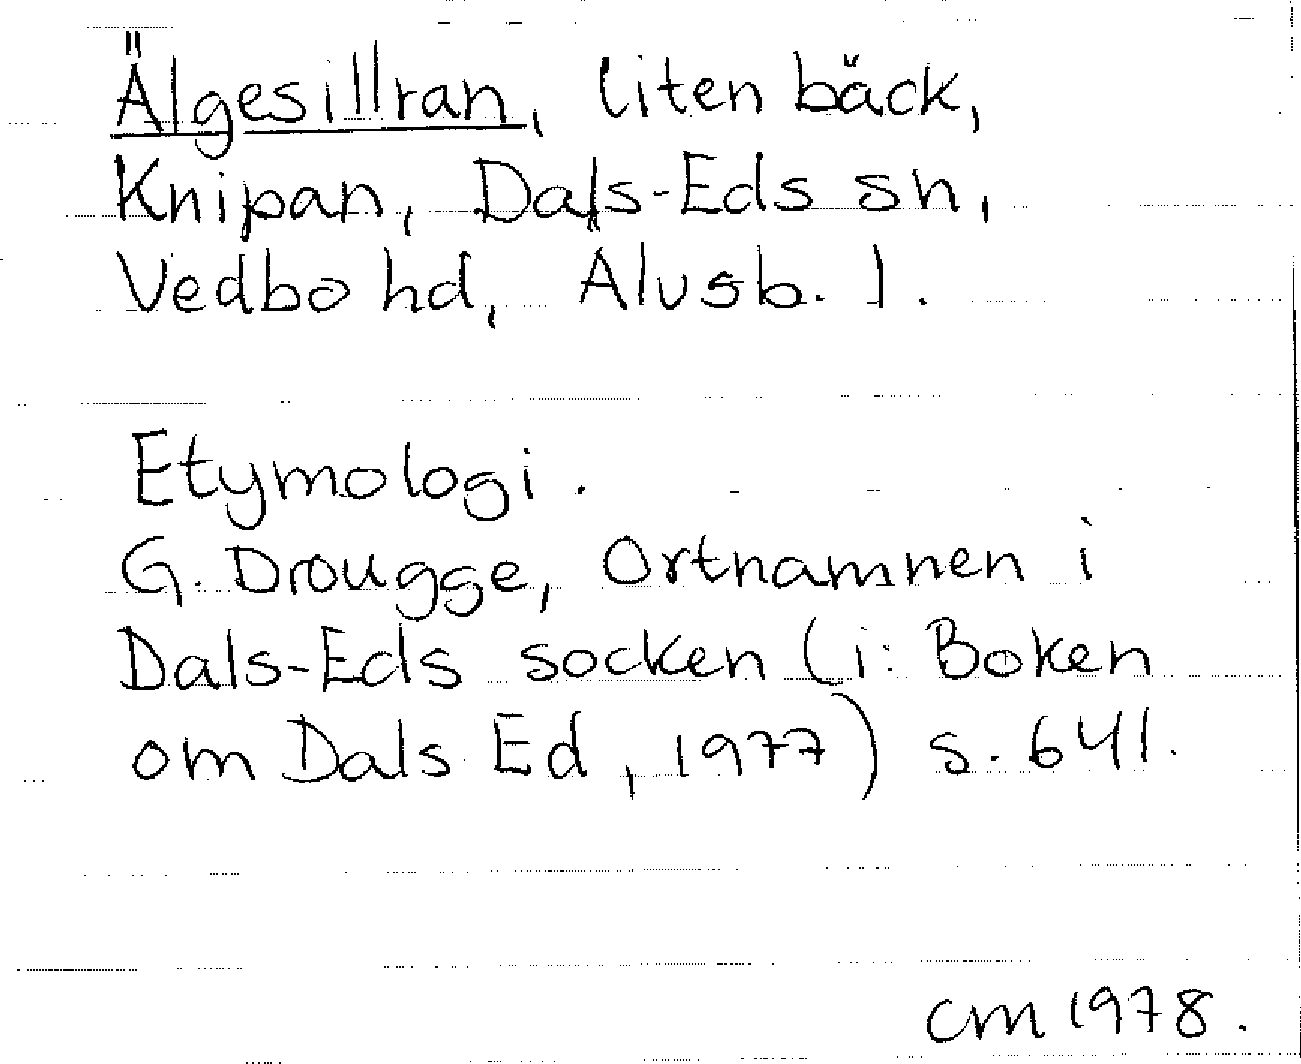 Älgesillran, liten bäck,
Knipan, Dals-Eds sn,
Vedbo hd, Älvsb. l.
Etymologi.
G. Drougge, Ortnamnen i
Dals-Eds socken (i: Boken
om Dals Ed, 1977) s. 641.
CM 1978.